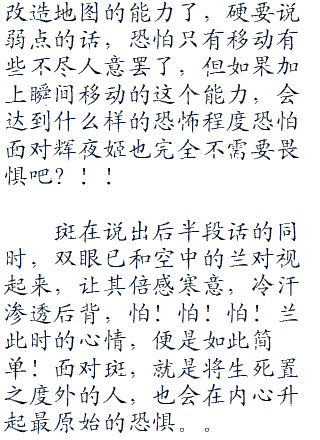 改造地图的能力了，硬要说
弱点的话，恐怕只有移动有
些不尽人意罢了，但如果加
上瞬间移动的这个能力，会
达到什么样的恐怖程度恐怕
面对辉夜姬也完全不需要畏
惧吧？！！
斑在说出后半段话的同
时，双眼已和空中的兰对视
起来，让其倍感寒意，冷汗
渗透后背，怕！怕！怕！兰
此时的心情，便是如此简
单！面对斑，就是将生死置
之度外的人，也会在内心升
起最原始的恐惧。。